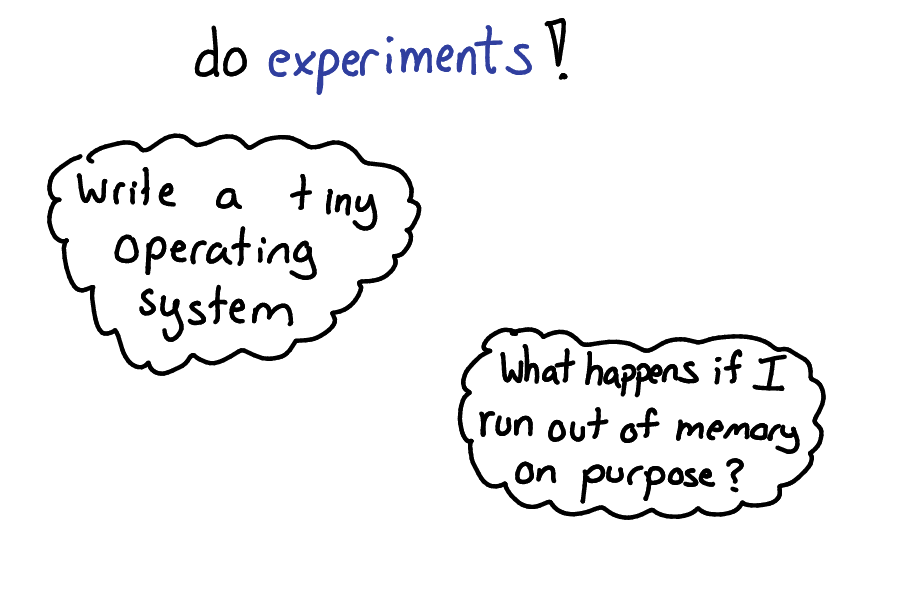 do experiments!
write a tiny
operating
system
What happens if I
run out of memory
on purpose?